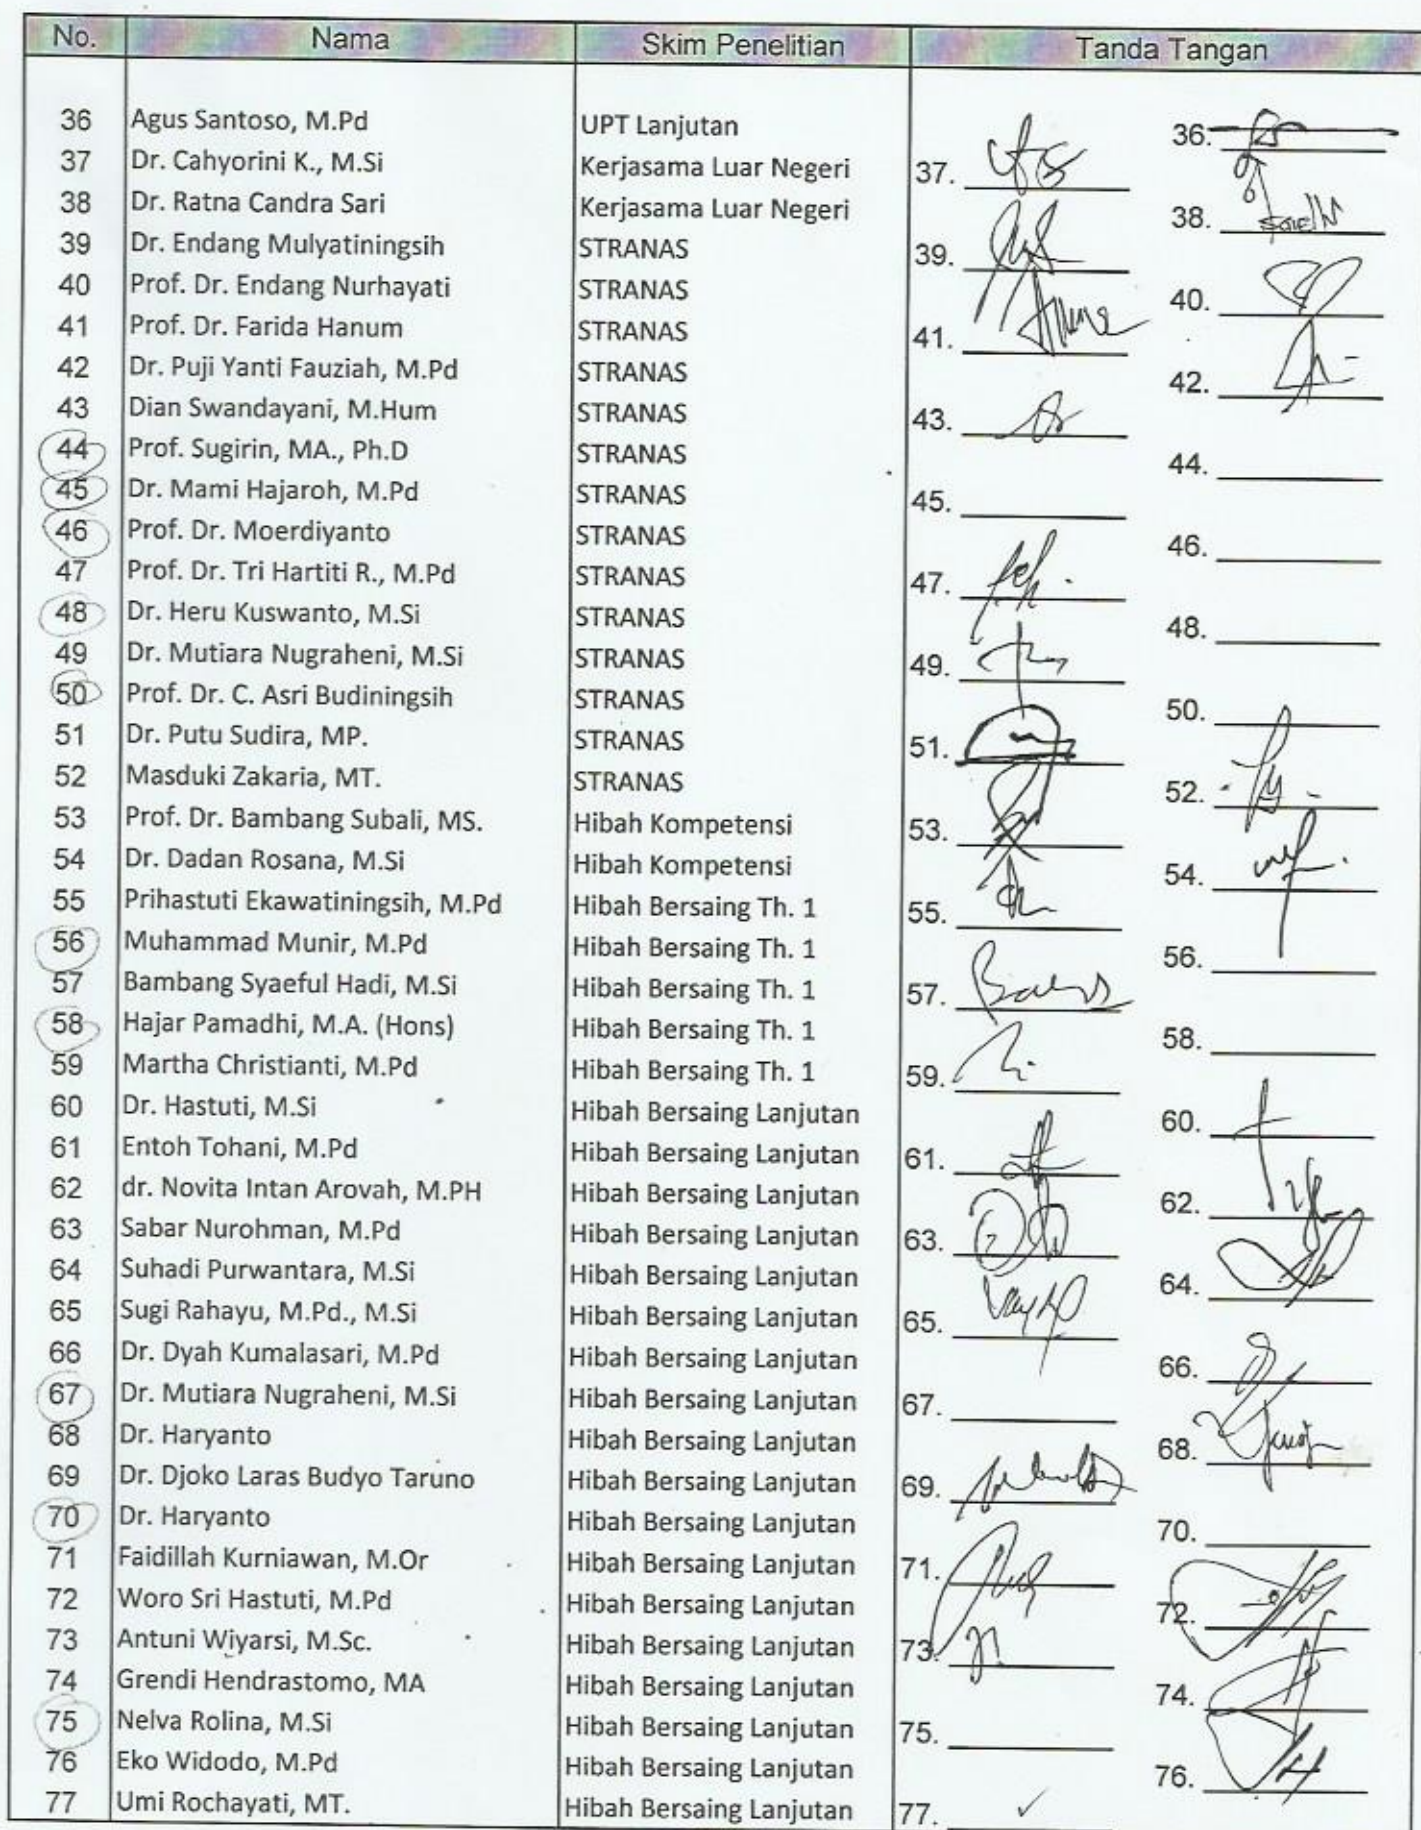 No. Nama Skim Penelitian Tanda Tangan
36 Agus Santoso, M.Pd UPT Lanjutan 36.
37 Dr. Cahyorini K., M.Si Kerjasama Luar Negeri 37.
38 Dr. Ratna Candra Sari Kerjasama Luar Negeri 38.
39 Dr. Endang Mulyatiningsih STRANAS 39.
40 Prof. Dr. Endang Nurhayati STRANAS 40.
41 Prof. Dr. Farida Hanum STRANAS 41.
42 Dr. Puji Yanti Fauziah, M.Pd STRANAS 42.
43 Dian Swandayani, M.Hum STRANAS 43.
44 Prof. Sugirin, MA., Ph.D STRANAS 44.
45 Dr. Mami Hajaroh, M.Pd STRANAS 45.
46 Prof. Dr. Moerdiyanto STRANAS 46.
47 Prof. Dr. Tri Hartiti R., M.Pd STRANAS 47.
48 Dr. Heru Kuswanto, M.Si STRANAS 48.
49 Dr. Mutiara Nugraheni, M.Si STRANAS 49.
50 Prof. Dr. C. Asri Budiningsih STRANAS 50.
51 Dr. Putu Sudira, MP. STRANAS 51.
52 Masduki Zakaria, MT. STRANAS 52.
53 Prof. Dr. Bambang Subali, MS. Hibah Kompetensi 53.
54 Dr. Dadan Rosana, M.Si Hibah Kompetensi 54.
55 Prihastuti Ekawatiningsih, M.Pd Hibah Bersaing Th. 1 55.
56 Muhammad Munir, M.Pd Hibah Bersaing Th. 1 56.
57 Bambang Syaeful Hadi, M.Si Hibah Bersaing Th. 1 57.
58 Hajar Pamadhi, M.A. (Hons) Hibah Bersaing Th. 1 58.
59 Martha Christianti, M.Pd Hibah Bersaing Th. 1 59.
60 Dr. Hastuti, M.Si Hibah Bersaing Lanjutan 60.
61 Entoh Tohani, M.Pd Hibah Bersaing Lanjutan 61.
62 dr. Novita Intan Arovah, M.PH Hibah Bersaing Lanjutan 62.
63 Sabar Nurohman, M.Pd Hibah Bersaing Lanjutan 63.
64 Suhadi Purwantara, M.Si Hibah Bersaing Lanjutan 64.
65 Sugi Rahayu, M.Pd., M.Si Hibah Bersaing Lanjutan 65.
66 Dr. Dyah Kumalasari, M.Pd Hibah Bersaing Lanjutan 66.
67 Dr. Mutiara Nugraheni, M.Si Hibah Bersaing Lanjutan 67.
68 Dr. Haryanto Hibah Bersaing Lanjutan 68.
69 Dr. Djoko Laras Budyo Taruno Hibah Bersaing Lanjutan 69.
70 Dr. Haryanto Hibah Bersaing Lanjutan 70.
71 Faidillah Kurniawan, M.Or Hibah Bersaing Lanjutan 71.
72 Woro Sri Hastuti, M.Pd Hibah Bersaing Lanjutan 72.
73 Antuni Wiyarsi, M.Sc. Hibah Bersaing Lanjutan 73.
74 Grendi Hendrastomo, MA Hibah Bersaing Lanjutan 74.
75 Nelva Rolina, M.Si Hibah Bersaing Lanjutan 75.
76 Eko Widodo, M.Pd Hibah Bersaing Lanjutan 76.
77 Umi Rochayati, MT. Hibah Bersaing Lanjutan 77.